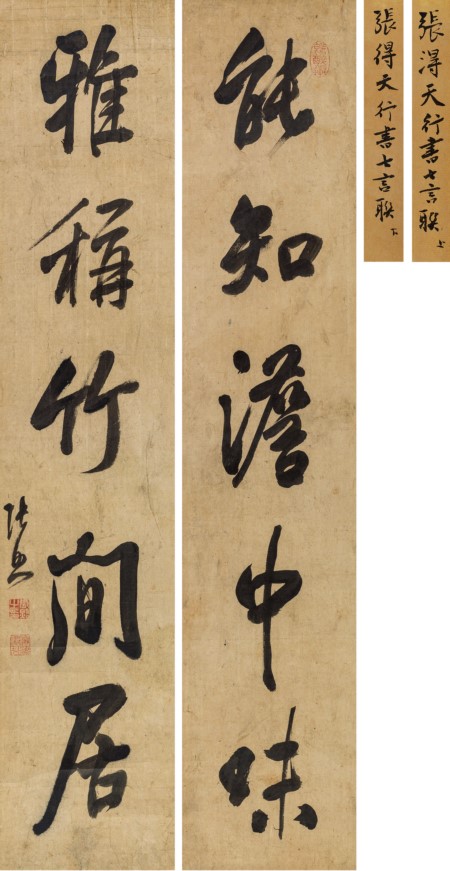 張得天行書七言聯上
張得天行書七言聯下
能知澹中味
雅稱竹間居
張照